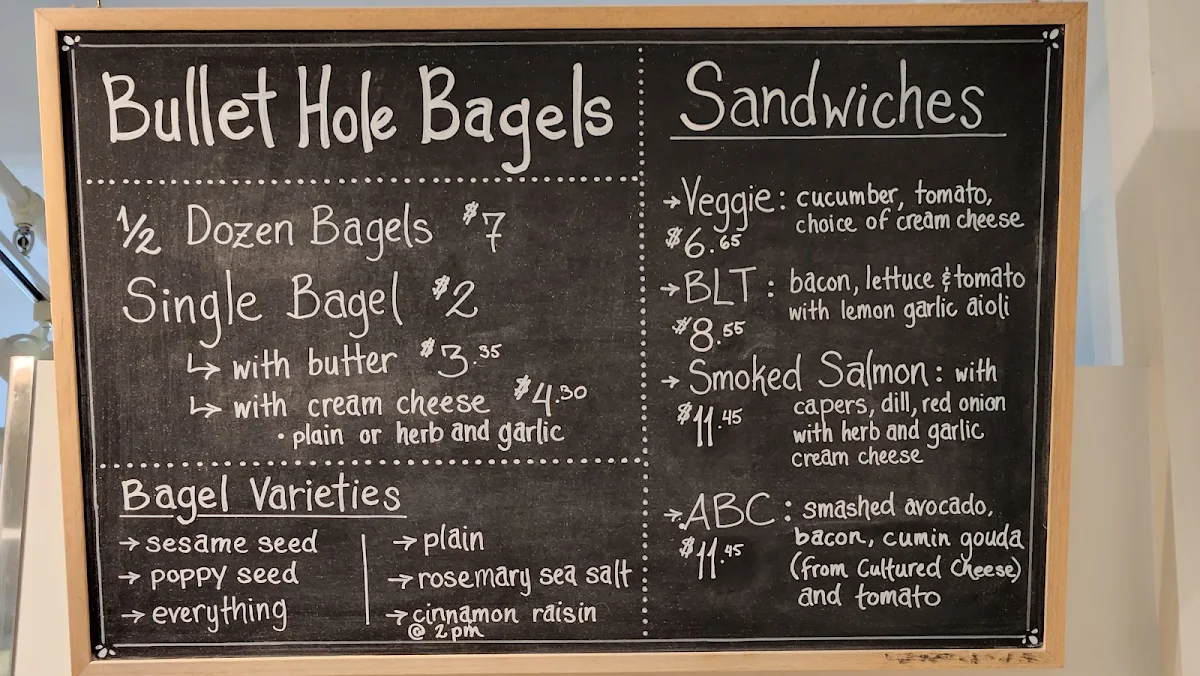 Bullet Hole Bagels
1/2 Dozen Bagels $7
Single Bagel $2
↳ with butter $3.35
↳ with cream cheese $4.30
• plain or herb and garlic
Bagel Varieties
→ sesame seed
→ poppy seed
→ everything
→ plain
→ rosemary sea salt
→ cinnamon raisin
@ 2pm
Sandwiches
→ Veggie: cucumber, tomato,
$6.65 choice of cream cheese
→ BLT: bacon, lettuce & tomato
with lemon garlic aioli
$8.55
→ Smoked Salmon: with
$11.45 capers, dill, red onion
with herb and garlic
cream cheese
→ ABC: smashed avocado,
$11.45 bacon, cumin gouda
(from Cultured Cheese)
and tomato